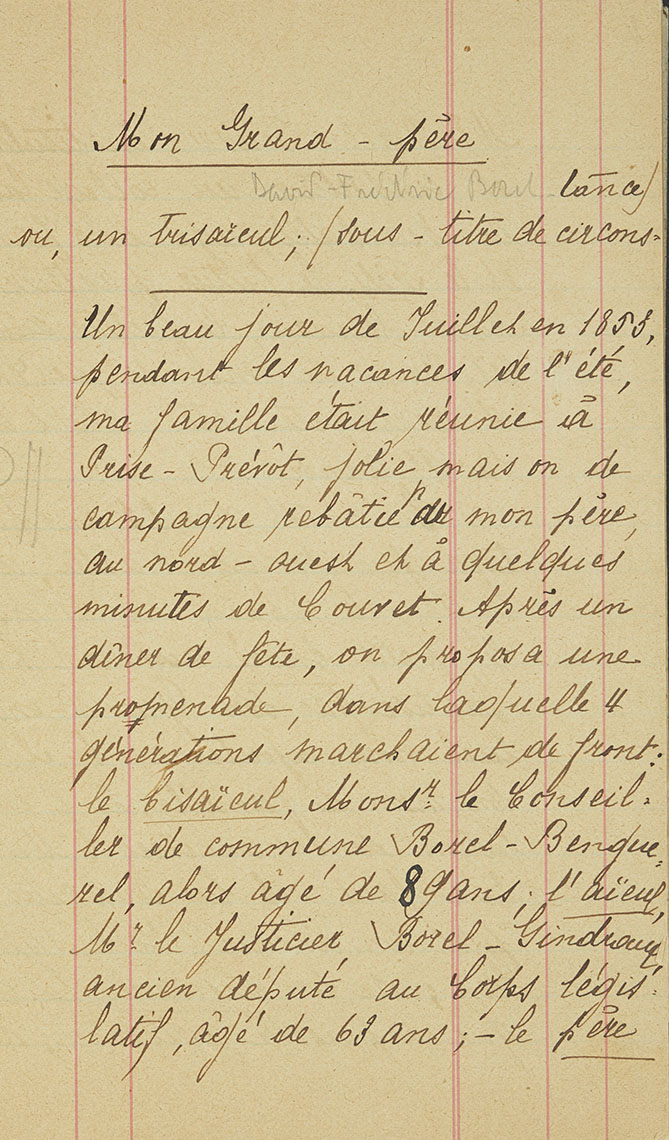 Mon Grand-père
David-Frédéric Borel
tance)
ou, un trisaïcul; (sous-titre de circons-
Un beau jour de Juillet en 1853,
pendant les vacances de l'été,
ma famille était réunie à
Prise-Prévôt, jolie maison de
campagne rebâtie pr mon père,
au nord-ouest et à quelques
minutes de Couvet. Après un
dîner de fête, on proposa une
promenade, dans laquelle 4
générations marchaient de front:
le bisaïcul, Monsr. le Conseil-
ler de commune Borel-Bengue-
rel, alors âgé de 89 ans; l'aïeul,
Mr. le Justicier Borel-Gindraux,
ancien député au Corps légis-
latif, âgé de 63 ans; - le père